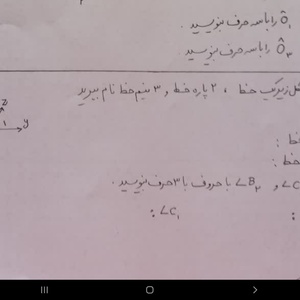 Ô₁ را با سه حرف بنویسید .
Ô₃ را با سه حرف بنویسید
شکل زیر یک خط ، ۲ پاره خط و ۳ نیم خط نام ببرید
z
y
1
خط :
خط :
و ∠B₂ با حروف با ۳ حرف بنویسید .
∠C₁ :